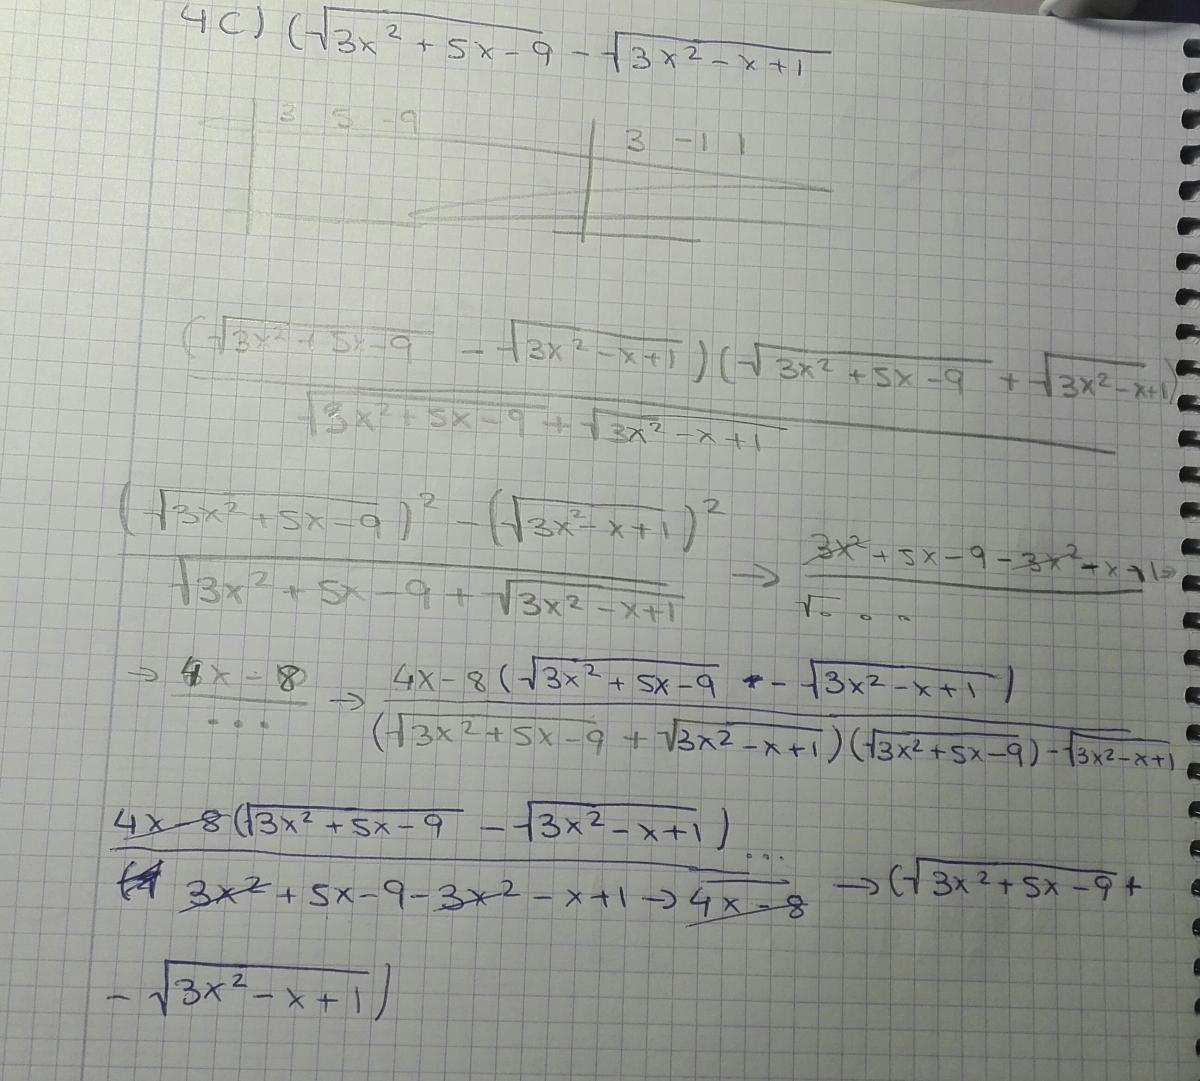 4C) (√3x² + 5x - 9 - √3x² - x + 1
3 5 -9
3 -1 1
(√3x² + 5x - 9 - √3x² - x + 1)(√3x² + 5x - 9 + √3x² - x + 1)
√3x² + 5x - 9 + √3x² - x + 1
(√3x² + 5x - 9)² - (√3x² - x + 1)²
√3x² + 5x - 9 + √3x² - x + 1
→ 3x² + 5x - 9 - 3x² + x + 1 →
√- . . .
→ 4x - 8 → 4x - 8 (√3x² + 5x - 9 - √3x² - x + 1)
... (√3x² + 5x - 9 + √3x² - x + 1)(√3x² + 5x - 9) - √3x² - x + 1
4x - 8 (√3x² + 5x - 9 - √3x² - x + 1) ...
3x² + 5x - 9 - 3x² - x + 1 → 4x - 8 → (√3x² + 5x - 9 +
- √3x² - x + 1)